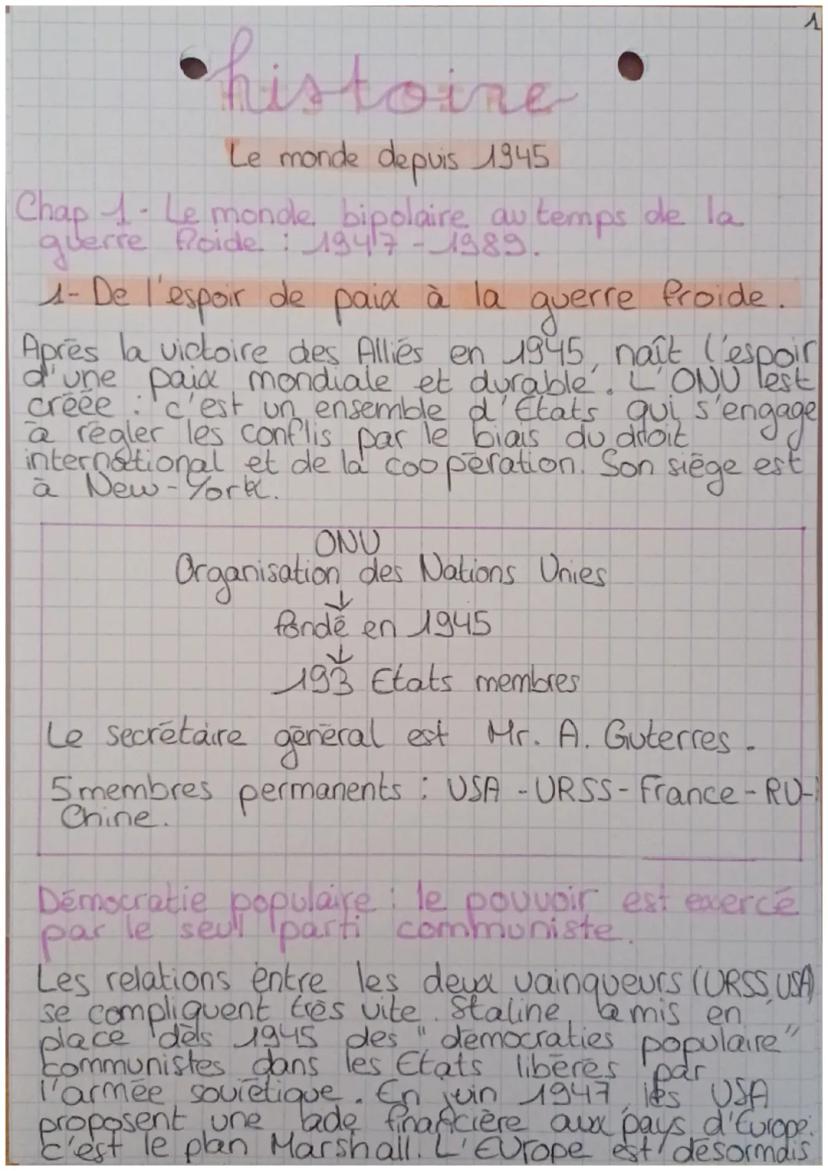 1
histoire
Le monde depuis 1945
Chap 1 - Le monde bipolaire au temps de la
guerre froide : 1947 - 1989.
1- De l'espoir de paix à la guerre froide.
Après la victoire des Alliés en 1945, naît l'espoir
d'une paix mondiale et durable. L'ONU est
créée : c'est un ensemble d'Etats qui s'engage
à régler les conflis par le biais du droit
international et de la coopération. Son siège est
à New-York.
ONU
Organisation des Nations Unies
↓
fondé en 1945
↓
193 Etats membres
Le secrétaire général est Mr. A. Guterres.
5 membres permanents : USA - URSS - France - RU-
Chine.
Démocratie populaire : le pouvoir est exercé
par le seul parti communiste.
Les relations entre les deux vainqueurs (URSS, USA)
se compliquent très vite. Staline, a mis en
place dès 1945 des "démocraties populaire"
communistes dans les Etats libérés par
l'armée soviétique. En juin 1947, les USA
proposent une aide financière aux pays d'Europe:
c'est le plan Marshall. L'Europe est désormais